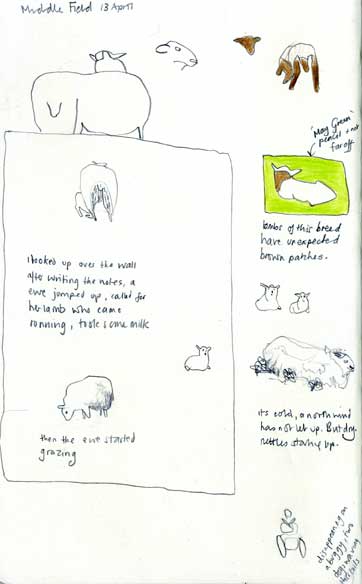 Middle Field 13 April
'May Green'
pencil + not
far off
lambs of this breed
have unexpected
brown patches.
I looked up over the wall
after writing the notes, a
ewe jumped up, called for
her lamb who came
running, took some milk
then the ewe started
grazing
its cold, a north wind
has not let up. But dry.
nettles starting up.
disappearing on
a buggy, two
dogs
tails